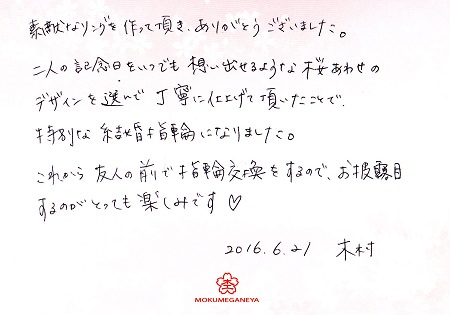 素敵なリングを作って頂き、ありがとうございました。
二人の記念日をいつでも想い出せるような桜あわせの
デザインを選んで丁寧に仕上げて頂いたことで、
特別な結婚指輪になりました。
これから友人の前で指輪交換をするので、お披露目
するのがとっても楽しみです♡
2016.6.21 木村
MOKUMEGANEYA